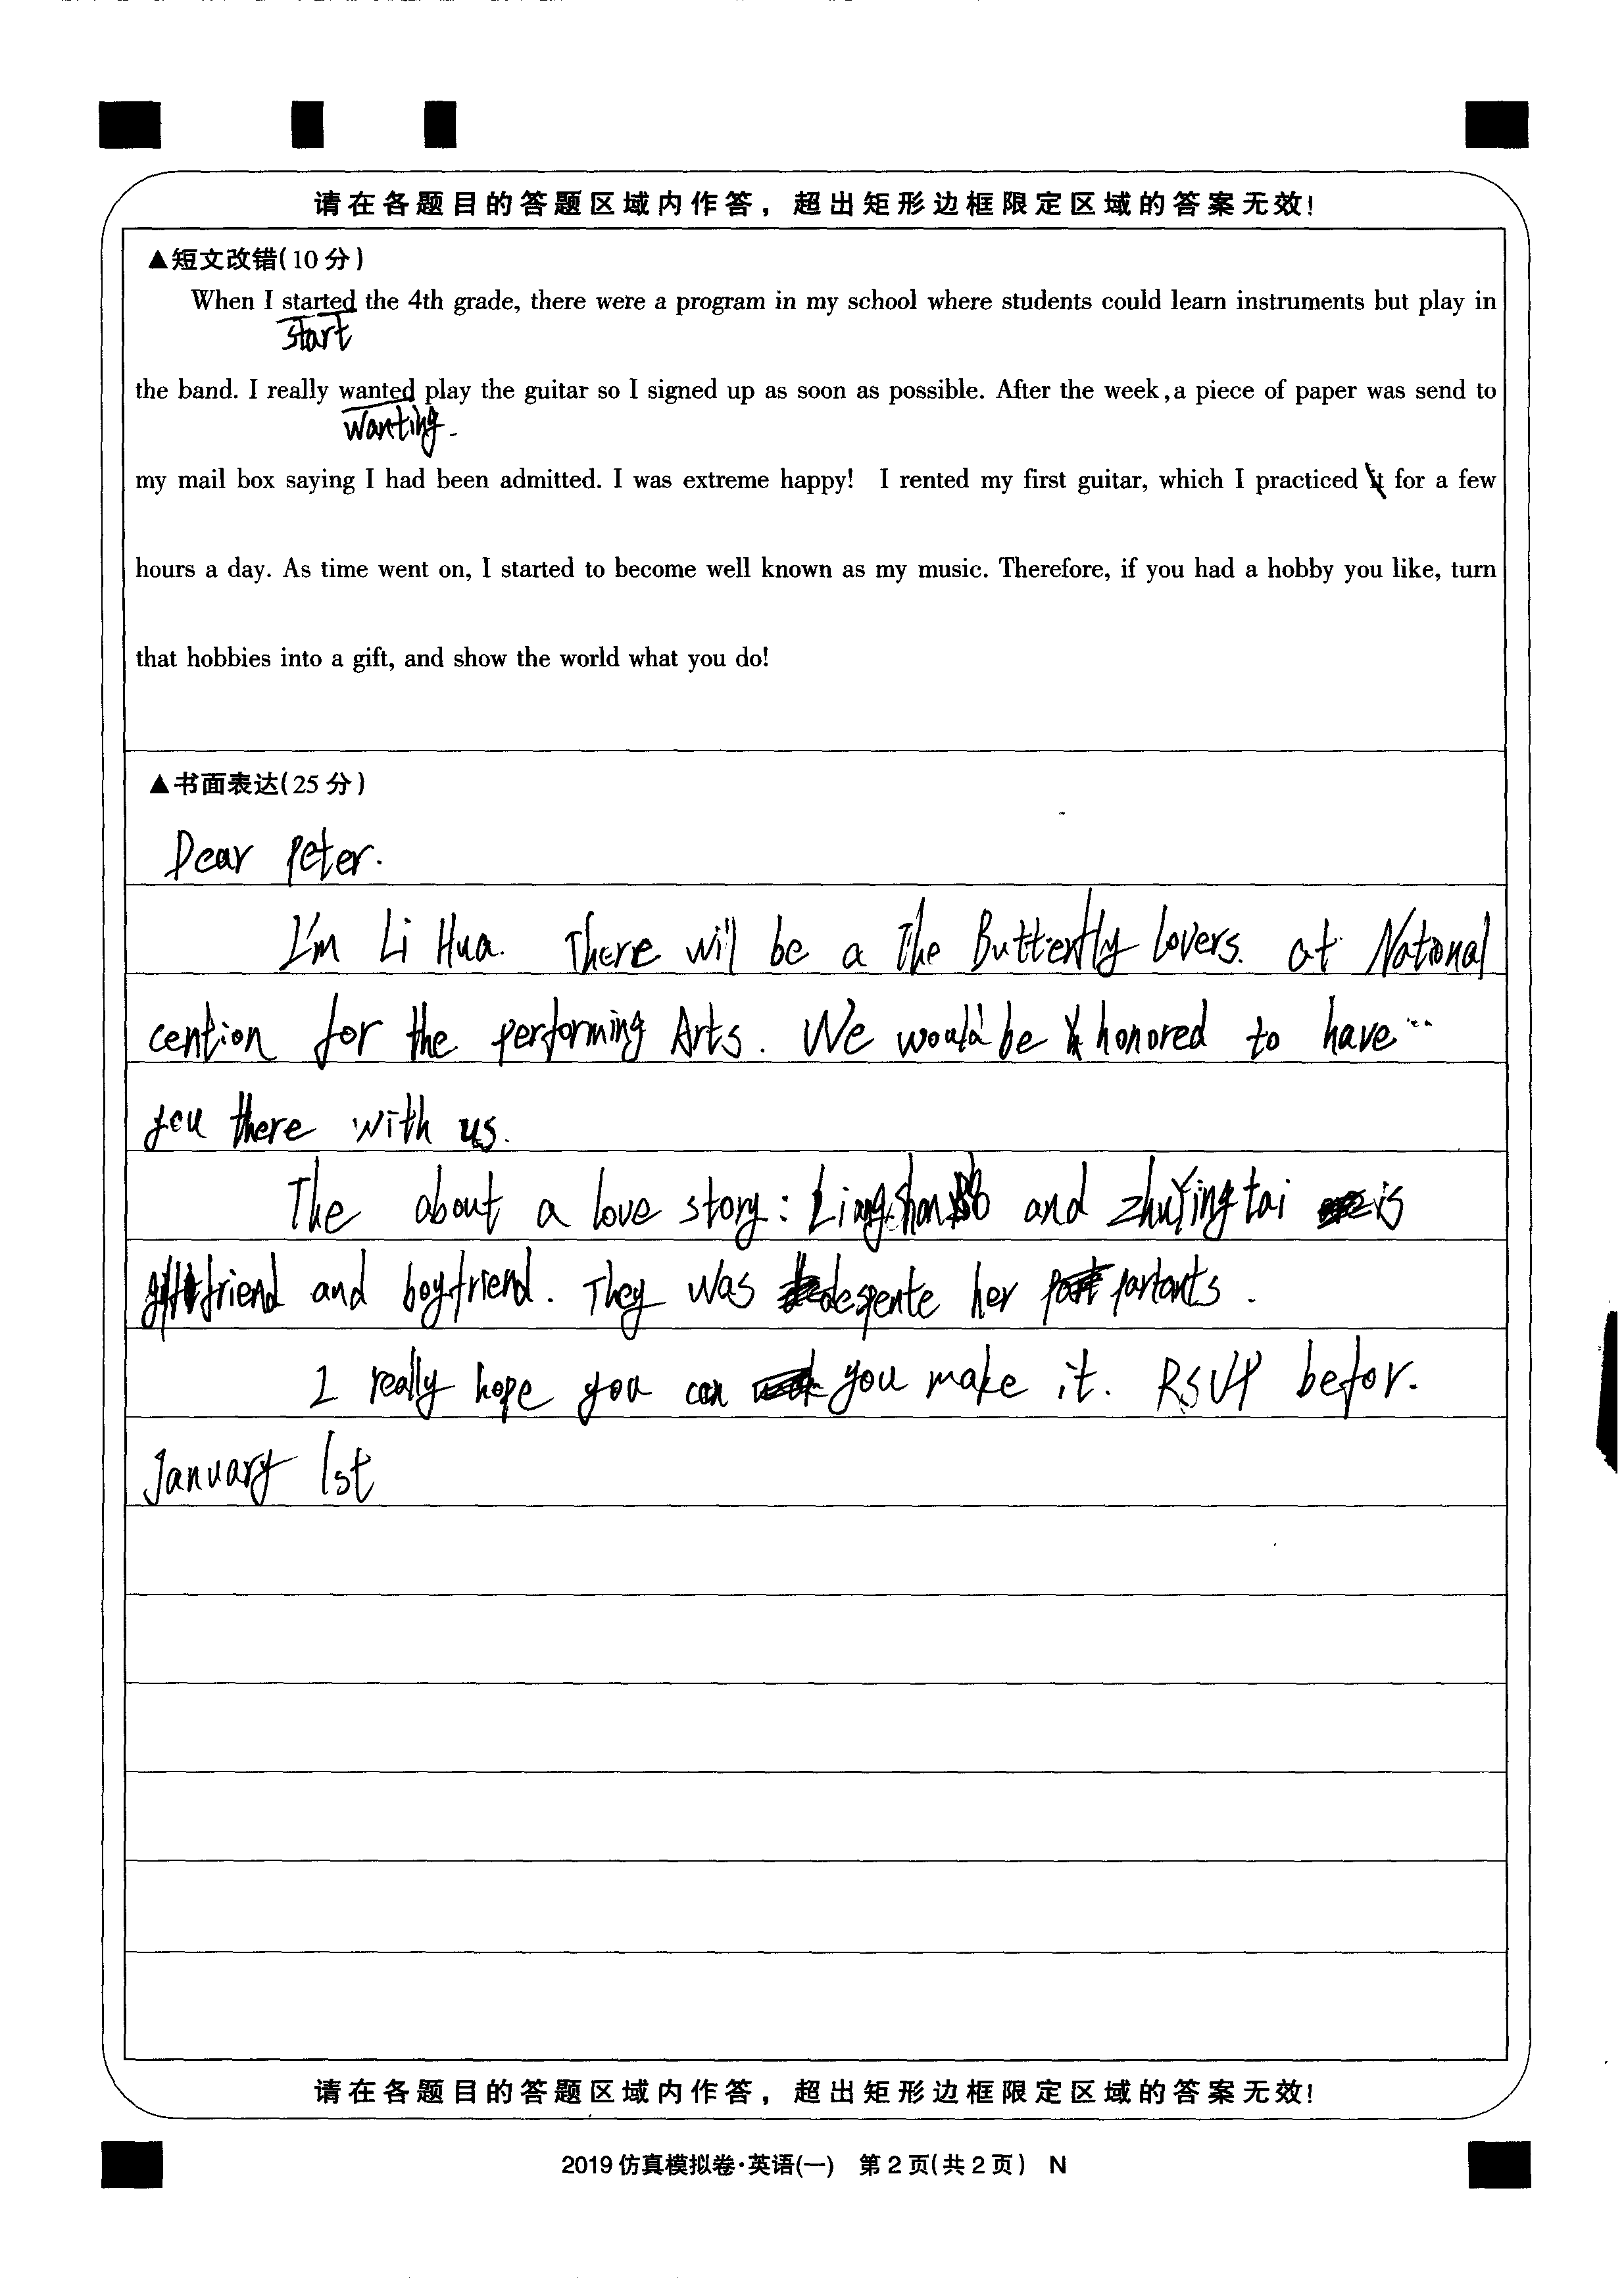 请在各题目的答题区域内作答，超出矩形边框限定区域的答案无效！
▲短文改错(10分)
When I started the 4th grade, there were a program in my school where students could learn instruments but play in
start
the band. I really wanted play the guitar so I signed up as soon as possible. After the week,a piece of paper was send to
wanting.
my mail box saying I had been admitted. I was extreme happy! I rented my first guitar, which I practiced it for a few
hours a day. As time went on, I started to become well known as my music. Therefore, if you had a hobby you like, turn
that hobbies into a gift, and show the world what you do!
▲书面表达(25分)
Dear Peter.
I'm Li Hua. There will be a The Butterfly lovers. at National
cention for the performing Arts. We would be honored to have
you there with us.
The about a love story: and zhuYingtai is
friend and boyfriend. They was her partants.
I really hope you can you make it. RSVP befor.
January 1st
请在各题目的答题区域内作答，超出矩形边框限定区域的答案无效！
2019仿真模拟卷·英语(一) 第2页(共2页) N